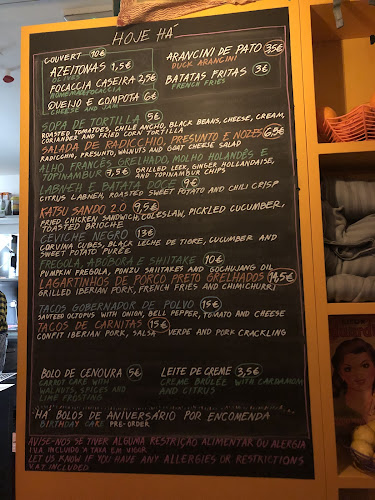 HOJE HÁ
COUVERT 10€
AZEITONAS 1,5€
OLIVES
FOCACCIA CASEIRA 2,5€
HOMEMADE FOCACCIA
QUEIJO E COMPOTA 6€
CHEESE AND JAM
ARANCINI DE PATO 3,5€
DUCK ARANCINI
BATATAS FRITAS 3€
FRENCH FRIES
SOPA DE TORTILLA 5€
ROASTED TOMATOES, CHILE ANCHO, BLACK BEANS, CHEESE, CREAM,
CORIANDER AND FRIED CORN TORTILLA
SALADA DE RADICCHIO, PRESUNTO E NOZES
RADICCHIO, PRESUNTO, WALNUTS AND GOAT CHEESE SALAD
ALHO FRANCÊS GRELHADO, MOLHO HOLANDÊS E
TOPINAMBUR 9,5€ GRILLED LEEK, GINGER HOLLANDAISE,
AND TOPINAMBUR CHIPS
LABNEH E BATATA DOCE 9€
CITRUS LABNEH, ROASTED SWEET POTATO AND CHILI CRISP
KATSU SANDO 2.0 9,5€
FRIED CHICKEN SANDWICH, COLESLAW, PICKLED CUCUMBER,
TOASTED BRIOCHE
CEVICHE NEGRO 13€
CORVINA CUBES, BLACK LECHE DE TIGRE, CUCUMBER AND
SWEET POTATO PURÉE
FREGOLA, ABÓBORA E SHIITAKE 10€
PUMPKIN FREGOLA, PONZU SHIITAKES AND GOCHUJANG OIL
LAGARTINHOS DE PORCO PRETO GRELHADOS 14,5€
GRILLED IBERIAN PORK, FRENCH FRIES AND CHIMICHURRI
TACOS GOBERNADOR DE POLVO 15€
SAUTÉED OCTOPUS WITH ONION, BELL PEPPER, TOMATO AND CHEESE
TACOS DE CARNITAS 15€
CONFIT IBERIAN PORK, SALSA VERDE AND PORK CRACKLING
BOLO DE CENOURA 5€
CARROT CAKE WITH
WALNUTS, SPICES AND
LIME FROSTING
LEITE DE CREME 3,5€
CRÈME BRÛLÉE WITH CARDAMOM
AND CITRUS
HÁ BOLOS DE ANIVERSÁRIO POR ENCOMENDA
BIRTHDAY CAKE PRE-ORDER
AVISE-NOS SE TIVER ALGUMA RESTRIÇÃO ALIMENTAR OU ALERGIA
IVA INCLUÍDO À TAXA EM VIGOR
LET US KNOW IF YOU HAVE ANY ALLERGIES OR RESTRICTIONS
VAT INCLUDED